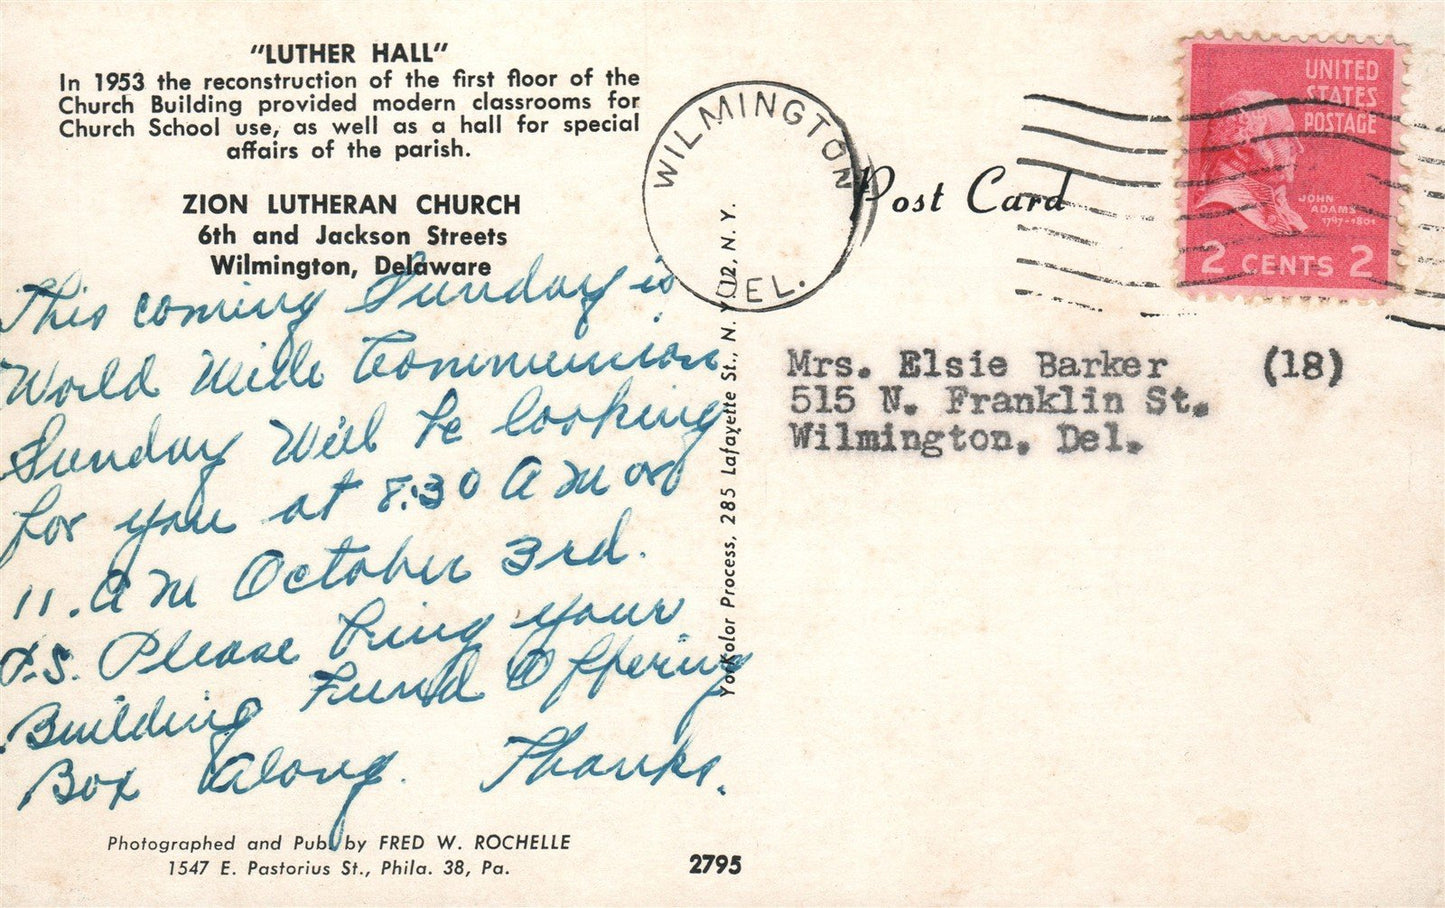 "LUTHER HALL"
In 1953 the reconstruction of the first floor of the
Church Building provided modern classrooms for
Church School use, as well as a hall for special
affairs of the parish.
ZION LUTHERAN CHURCH
6th and Jackson Streets
Wilmington, Delaware
This coming Sunday is
World Wide Communion
Sunday Will be looking
for you at 8:30 A M or
11. A M October 3rd.
P.S. Please bring your
Building Fund Offering
Box Along. Thanks.
Photographed and Pub. by FRED W. ROCHELLE
1547 E. Pastorius St., Phila. 38, Pa.
2795
YorKolor Process, 285 Lafayette St., N. Y. 12, N. Y.
WILMINGTON
DEL.
Post Card
UNITED
STATES
POSTAGE
JOHN
ADAMS
1797-1801
2 CENTS 2
Mrs. Elsie Barker (18)
515 N. Franklin St.
Wilmington, Del.